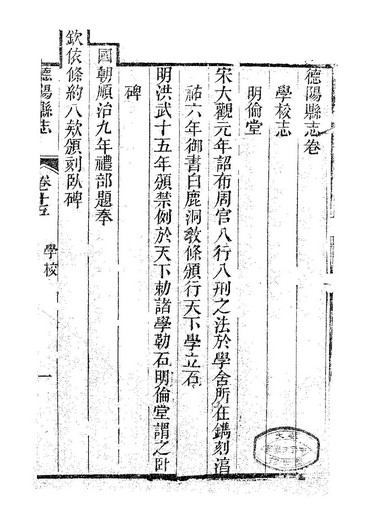 德陽縣志卷
學校志
明倫堂
宋大觀元年詔布周官八行八刑之法於學舍所在鐫刻淯
祐六年御書白鹿洞敎條頒行天下學立石
明洪武十五年頒禁例於天下勅諸學勒石明倫堂謂之臥
碑
國朝順治九年禮部題奉
欽依條約八款頒刻臥碑
德陽縣志
卷十五
學校
一